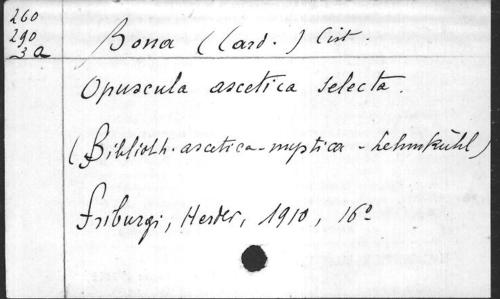 260
290
3a
Bona (Card.) Cist.
Opuscula ascetica selecta.
(Biblioth. ascetica-mystica - Lehmkühl)
Friburgi, Herder, 1910, 16º